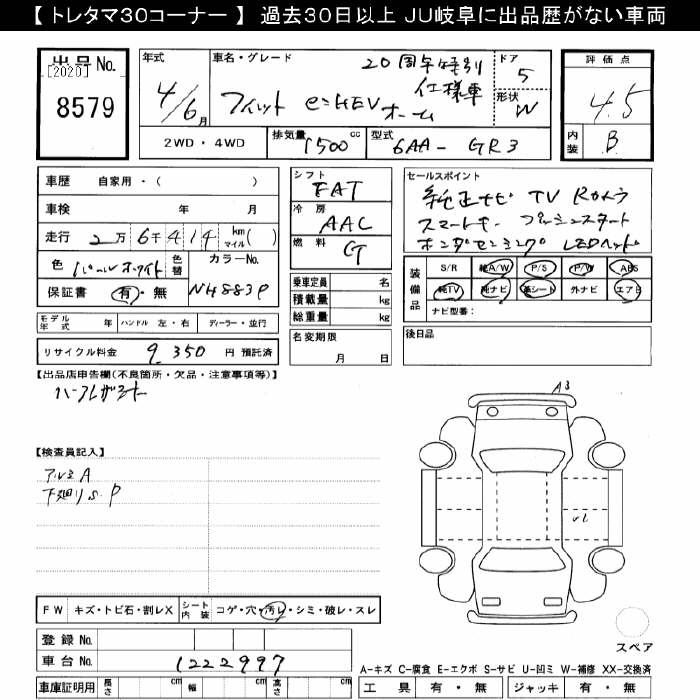 【 トレタマ30コーナー 】 過去30日以上 JU岐阜に出品歴がない車両
出品No.
[2020]
8579
年式
4/6月
車名・グレード
20周年特別仕様車
フィット e:HEV ホーム
ドア
5
形状
W
評価点
4.5
内装
B
2WD・4WD
排気量
1500cc
型式
6AA-GR3
車歴 自家用・( )
車検 年 月
走行 2万6千414 km マイル( )
色 パールホワイト 色替
カラーNo.
NH883P
保証書 有・無
シフト
FAT
冷房
AAC
燃料
G
乗車定員 名
積載量 kg
総重量 kg
セールスポイント
純正ナビ TV Rカメラ
スマートキー プッシュスタート
ホンダセンシング LEDヘッド
装備品
S/R 純A/W P/S P/W ABS
純TV 純ナビ 革シート 外ナビ エアB
ナビ型番:
モデル年式 年 ハンドル 左・右 ディーラー・並行
リサイクル料金 9,350 円 預託済
名変期限
月 日
後日品
【出品店申告欄(不良箇所・欠品・注意事項等)】
ハーフレザーシート
【検査員記入】
アルミA
下廻りS.P
A3
UL
FW キズ・トビ石・割レX
シート内装 コゲ・穴・汚レ・シミ・破レ・スレ
スペア
登録No.
車台No. 1222997
A-キズ C-腐食 E-エクボ S-サビ U-凹ミ W-補修 XX-交換済
車庫証明用 長さ cm 幅 cm 高さ cm
工具 有・無 ジャッキ 有・無